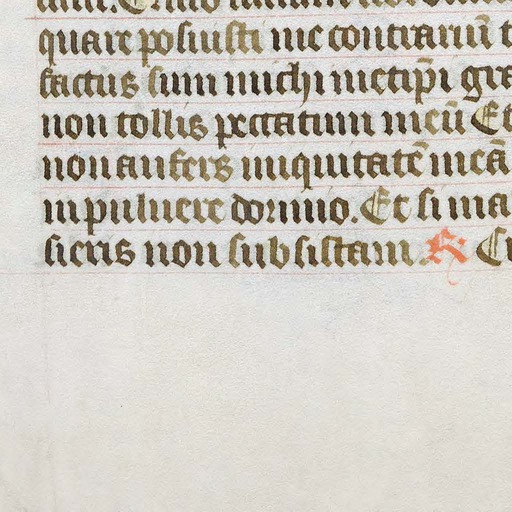 quare posuisti me contrariũ t
factus sum michi metip̃i gra
non tollis peccatum meũ Et
non aufers iniquitatẽ meã
in puluere dormio. Et si ma
sieris non subsistam. R